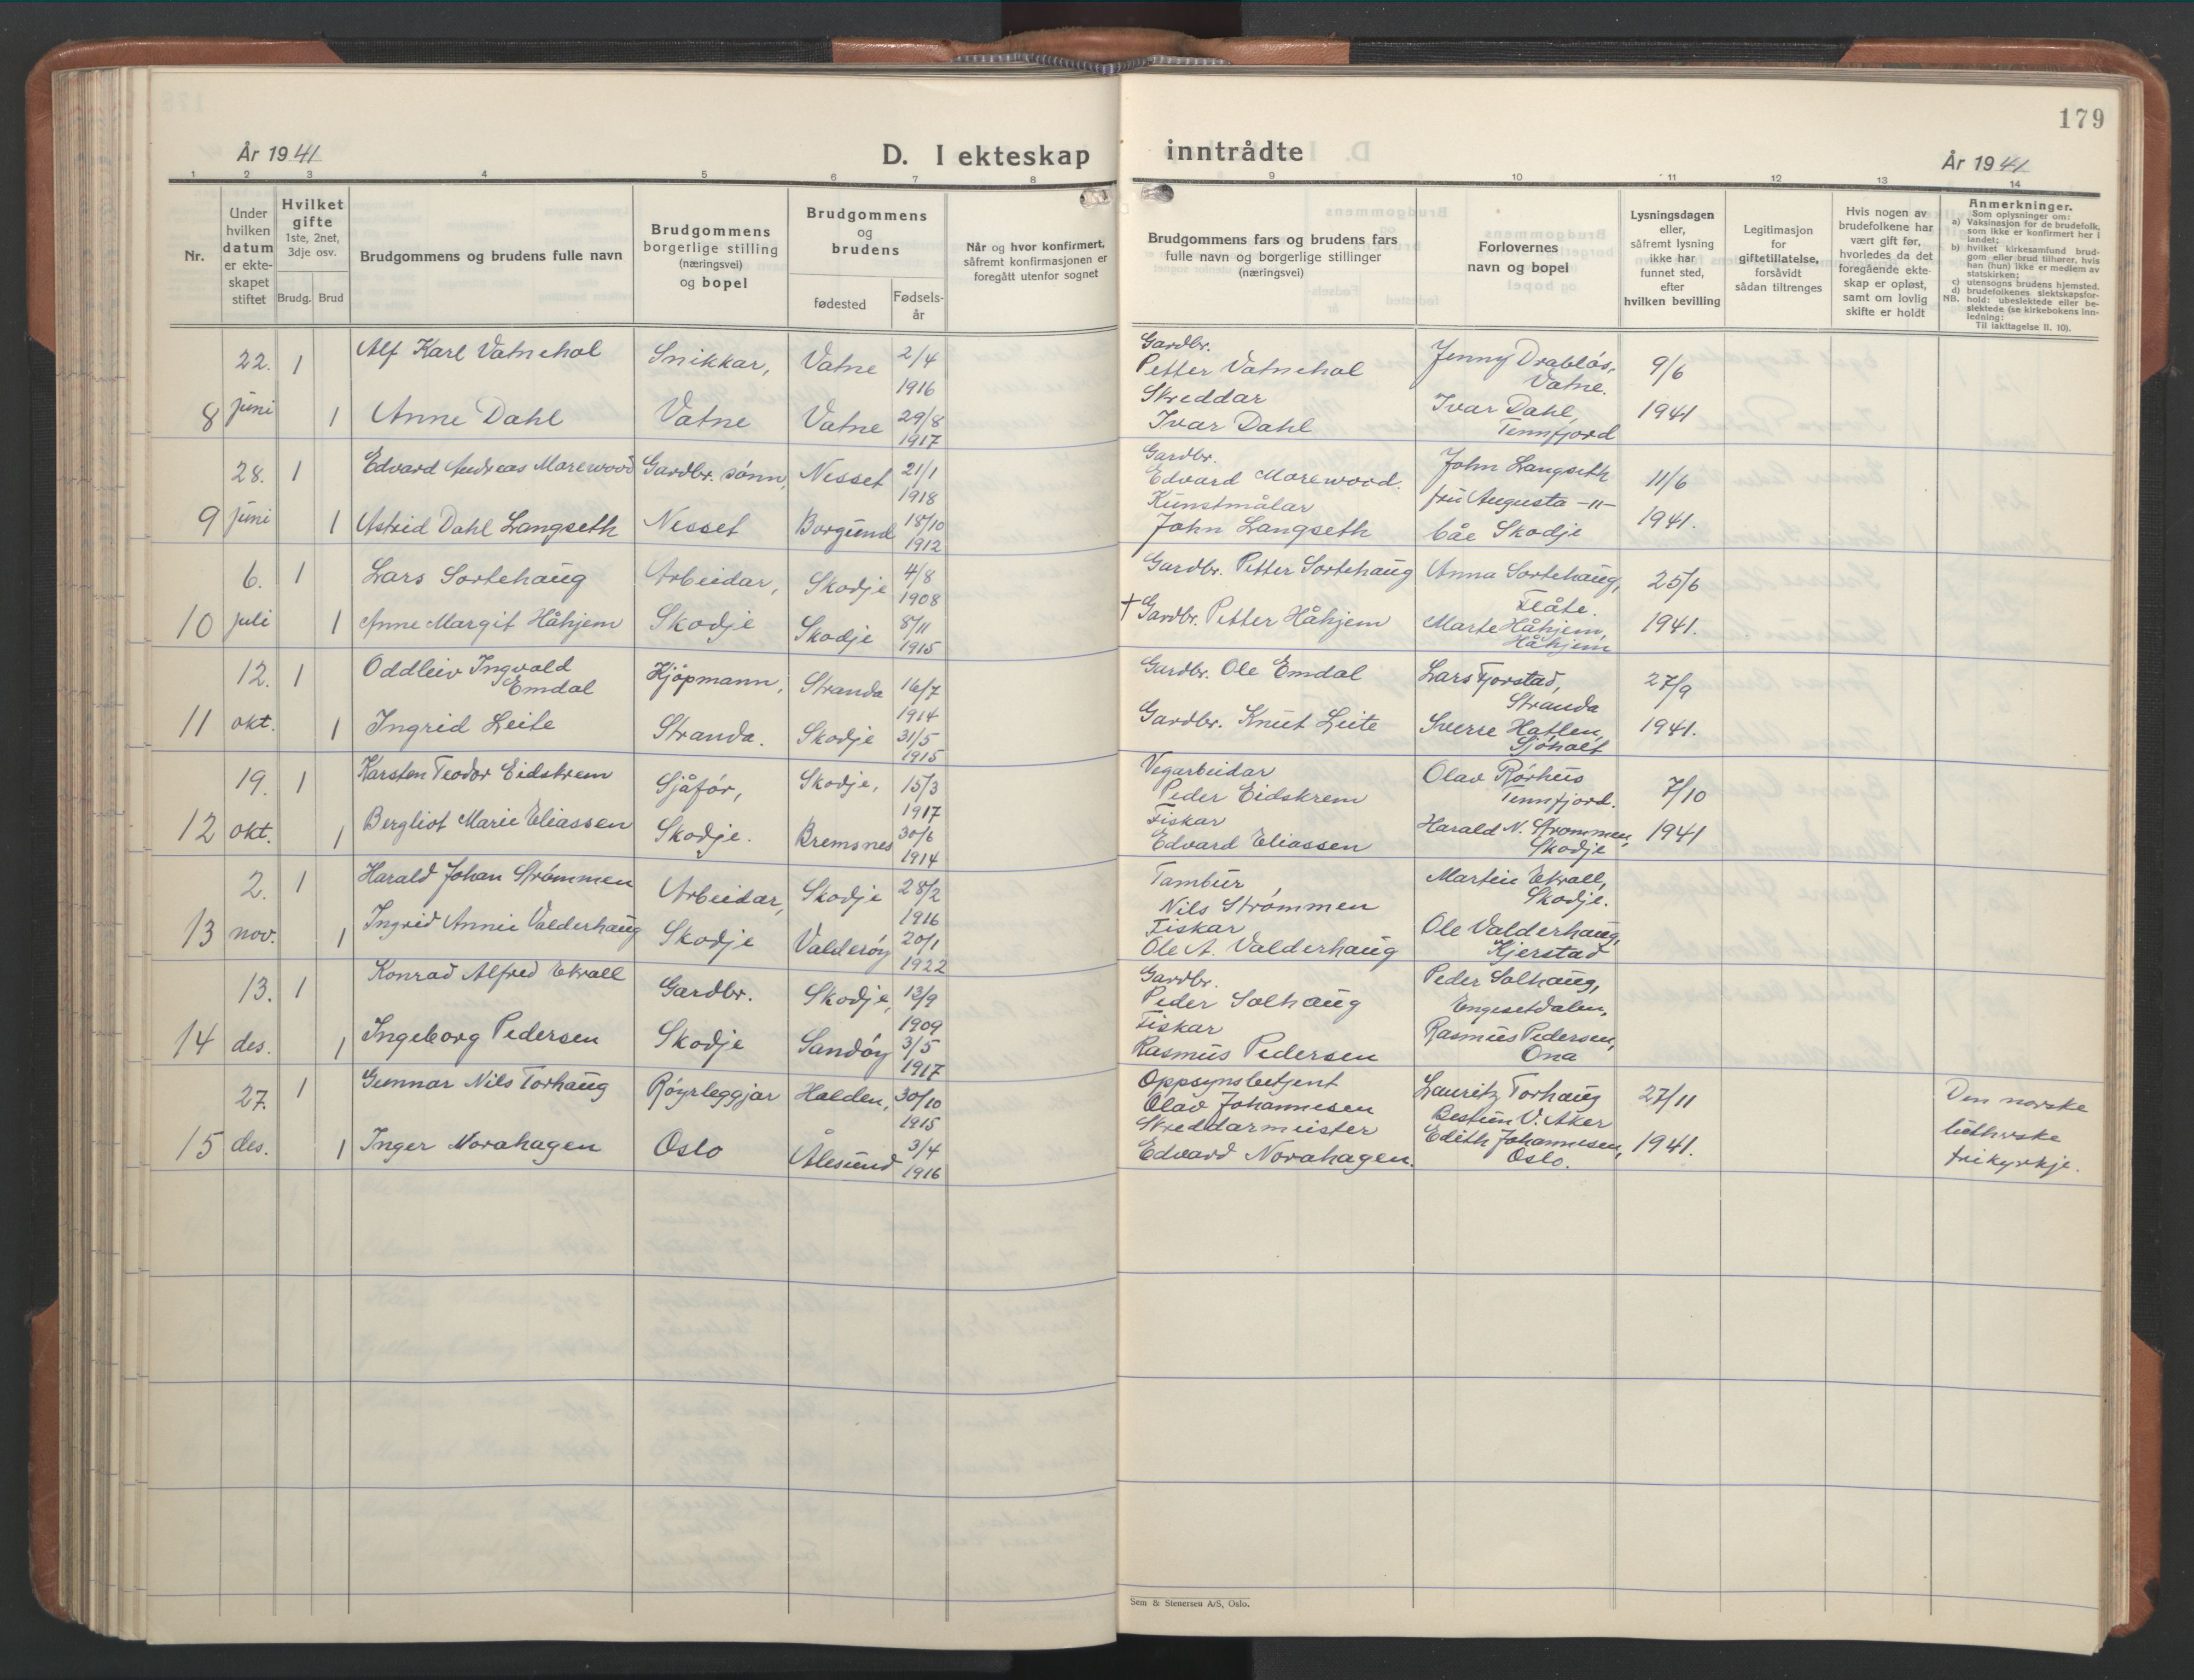 179
År 1941
D. I ekteskap inntrådte
År 1941
1 2 3 4 5 6 7 8 9 10 11 12 13 14
Nr.
Under hvilken datum er ekteskapet stiftet
Hvilket gifte
1ste, 2net, 3dje osv.
Brudg. Brud
Brudgommens og brudens fulle navn
Brudgommens borgerlige stilling (næringsvei) og bopel
Brudgommens og brudens
fødested
Fødsels-år
Når og hvor konfirmert, såfremt konfirmasjonen er foregått utenfor sognet
Brudgommens fars og brudens fars fulle navn og borgerlige stillinger (næringsvei)
Forlovernes navn og bopel
Lysningsdagen eller, såfremt lysning ikke har funnet sted, efter hvilken bevilling
Legitimasjon for giftetillatelse, forsåvidt sådan tiltrenges
Hvis nogen av brudefolkene har vært gift før, hvorledes da det foregående ekteskap er opløst, samt om lovlig skifte er holdt
Anmerkninger.
Som oplysninger om:
a) Vaksinasjon for de brudefolk, som ikke er konfirmert her i landet;
b) hvilket kirkesamfund brudgom eller brud tilhører, hvis han (hun) ikke er medlem av statskirken;
c) utensogns brudens hjemsted.
d) brudefolkenes slektskapsforhold: ubeslektede eller beslektede (se kirkebokens innledning:
NB. Til iakttagelse II. 10).
22. 1 Alf Karl Vatnehol Snikkar, Vatne 2/4 1916 Gardbr. Petter Vatnehol Jenny Drabløs, Vatne. 9/6
8 juni 1 Anne Dahl Vatne Vatne 29/8 1917 Skreddar Ivar Dahl Ivar Dahl, Tennfjord 1941
28. 1 Edvard Andreas Morewood Gardbr. sønn, Nesset 21/1 1918 Gardbr. Edvard Morewood. John Langseth 11/6
9 juni 1 Astrid Dahl Langseth Nesset Borgund 18/10 1912 Kunstmålar John Langseth fru Augusta -"- båe Skodje 1941.
6. 1 Lars Sortehaug Arbeidar, Skodje 4/8 1908 Gardbr. Petter Sortehaug Anna Sortehaug, Flåte. 25/6
10 juli 1 Anne Margit Håhjem Skodje Skodje 8/11 1915 † Gardbr. Petter Håhjem Marte Håhjem, Håhjem 1941.
12. 1 Oddleiv Ingvald Emdal Kjøpmann, Stranda 16/7 1914 Gardbr. Ole Emdal Lars Fjorstad, Stranda 27/9
11 okt. 1 Ingrid Leite Stranda. Skodje 31/5 1915 Gardbr. Knut Leite Sverre Hatlen, Sjøholt 1941.
19. 1 Karsten Teodor Eidskrem Sjåfør, Skodje, 15/3 1917 Vegarbeidar Peder Eidskrem Olav Rørhus Tennfjord. 7/10
12 okt. 1 Bergliot Marie Eliassen Skodje. Bremsnes 30/6 1914 Fiskar Edvard Eliassen Harald N. Strømmen, Skodje 1941
2. 1 Harald Johan Strømmen Arbeidar, Skodje 28/2 1916 Tambur, Nils Strømmen Martin Ekroll, Skodje.
13 nov. 1 Ingrid Annie Valderhaug Skodje Valderøy 20/1 1922 Fiskar Ole A. Valderhaug Ole Valderhaug, Kjerstad
13. 1 Konrad Alfred Ekroll Gardbr. Skodje, 13/9 1909 Gardbr. Peder Solhaug Peder Solhaug, Engesetdalen,
14 des. 1 Ingeborg Pedersen Skodje Sandøy 3/5 1917 Fiskar Rasmus Pedersen Rasmus Pedersen, Ona
27. 1 Gunnar Nils Torhaug Røyrleggjar Halden, 30/10 1915 Oppsynsbetjent Olav Johannesen Lauritz Torhaug Bestun V. Aker 27/11 Den norske
15 des. 1 Inger Norahagen Oslo Ålesund 3/4 1916 Skreddarmeister Edvard Norahagen. Edith Johannesen, Oslo. 1941. lutherske frikyrkje.
Sem & Stenersen A/S, Oslo.